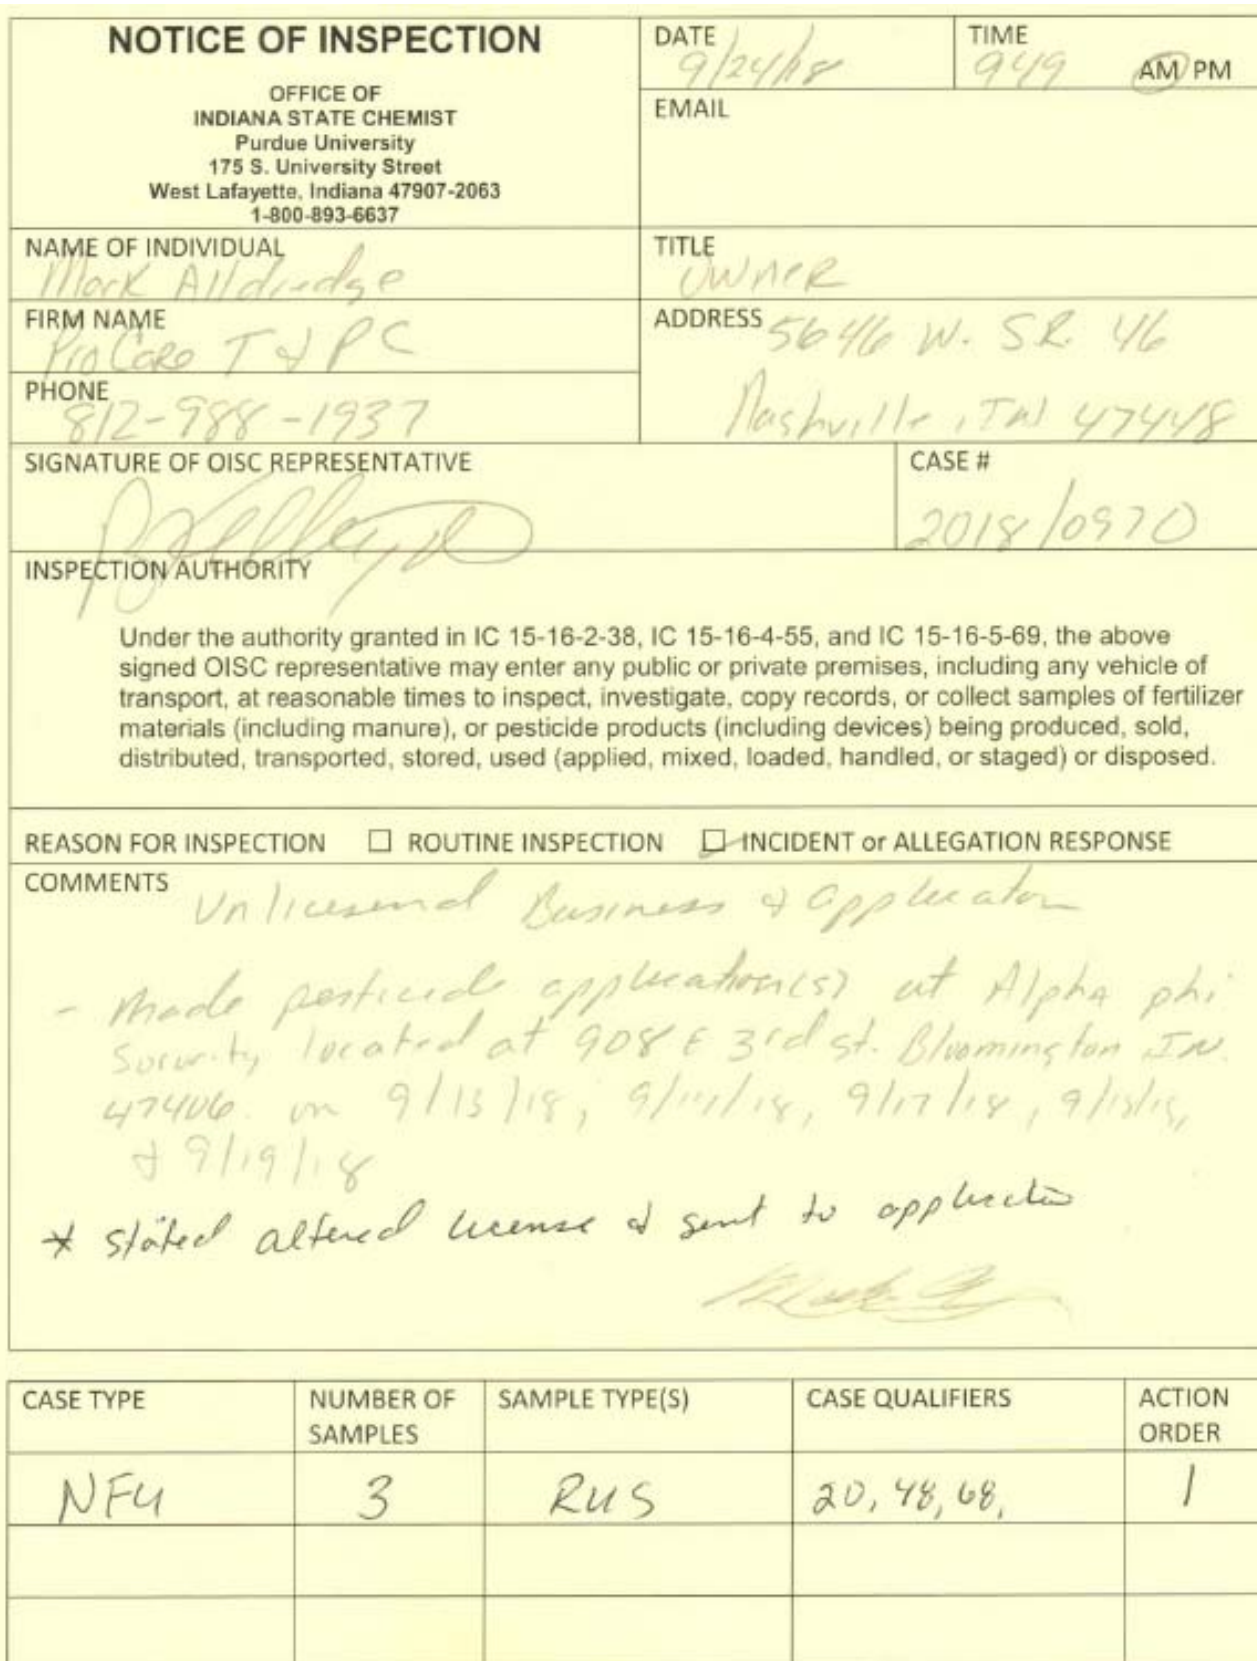 NOTICE OF INSPECTION
OFFICE OF
INDIANA STATE CHEMIST
Purdue University
175 S. University Street
West Lafayette, Indiana 47907-2063
1-800-893-6637
DATE
9/24/18
TIME
949 AM PM
EMAIL
NAME OF INDIVIDUAL
Mark Alldredge
TITLE
Owner
FIRM NAME
ProCare T & PC
ADDRESS 5646 W. SR. 46
Nashville, IN 47448
PHONE
812-988-1937
SIGNATURE OF OISC REPRESENTATIVE
CASE #
2018/0970
INSPECTION AUTHORITY
Under the authority granted in IC 15-16-2-38, IC 15-16-4-55, and IC 15-16-5-69, the above
signed OISC representative may enter any public or private premises, including any vehicle of
transport, at reasonable times to inspect, investigate, copy records, or collect samples of fertilizer
materials (including manure), or pesticide products (including devices) being produced, sold,
distributed, transported, stored, used (applied, mixed, loaded, handled, or staged) or disposed.
REASON FOR INSPECTION ☐ ROUTINE INSPECTION ☑ INCIDENT or ALLEGATION RESPONSE
COMMENTS
Unlicesend Business & applicator
- Made pesticide application(s) at Alpha phi
Sorurity located at 908 E 3rd st. Bloomington IN.
47406. on 9/13/18, 9/14/18, 9/17/18,
& 9/19/18
* stated altered license & sent to application
CASE TYPE
NUMBER OF
SAMPLES
SAMPLE TYPE(S)
CASE QUALIFIERS
ACTION
ORDER
NFU 3 RUS 20, 48, 68, 1